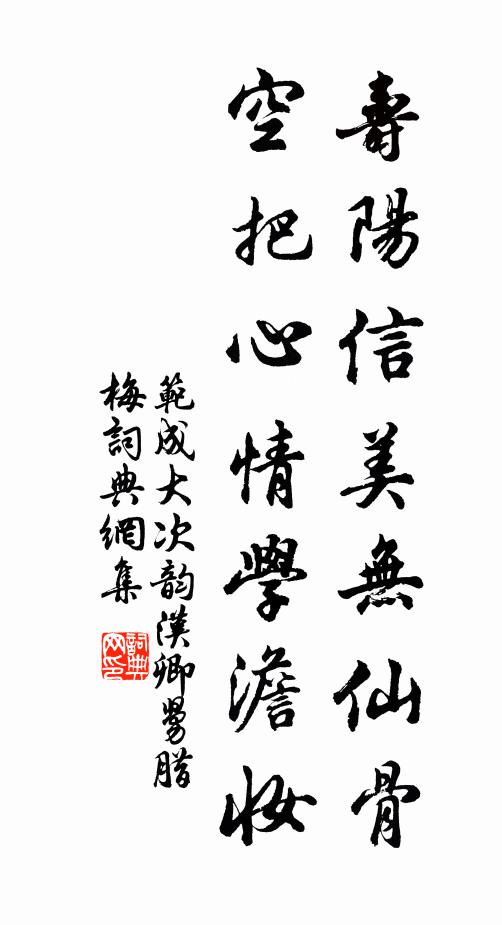 壽陽信美無仙骨
空把心情學澹妝
範成大次韵漢卿舅腊
梅詞典網集
詞典网印